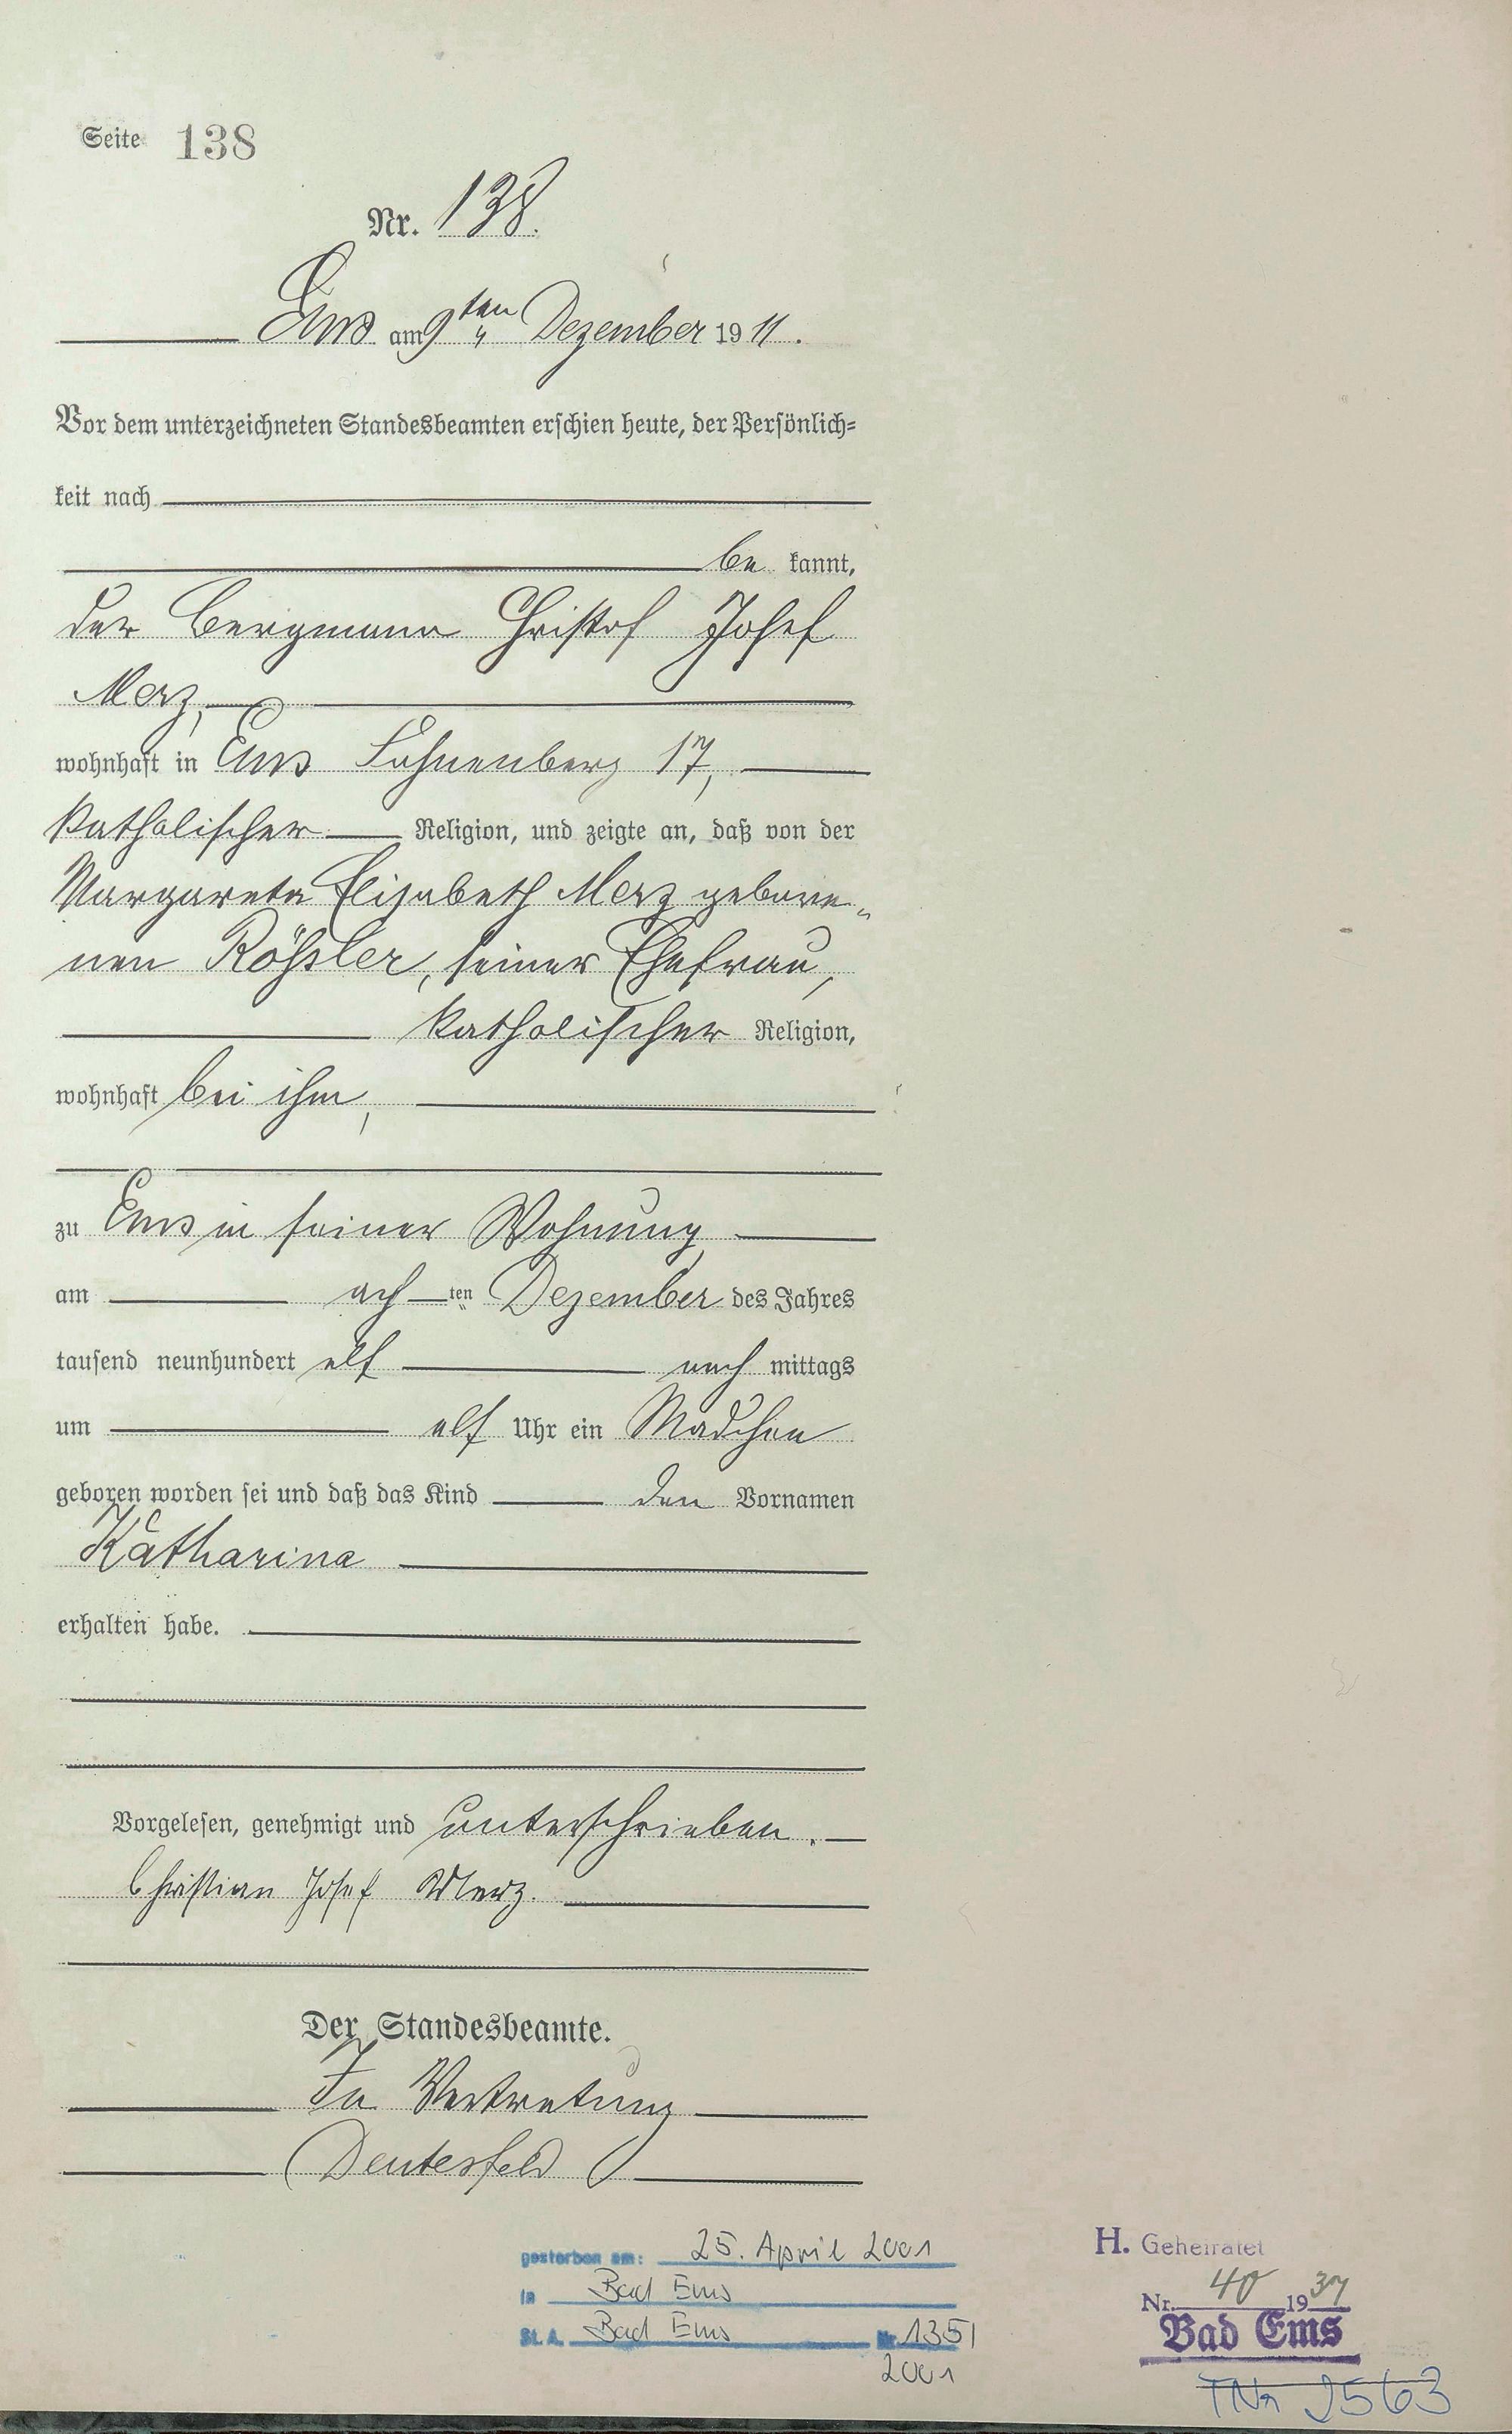 Seite 138
Nr. 138.
Ems am 9ten Dezember 1911.
Vor dem unterzeichneten Standesbeamten erschien heute, der Persönlich=
keit nach
be kannt,
der Bergmann Christof Josef
Merz,
wohnhaft in Ems Fahnenberg 17,
katholischer Religion, und zeigte an, daß von der
Margareta Elisabeth Merz gebore„
nen Rößler, seiner Ehefrau,
katholischer Religion,
wohnhaft bei ihm,
zu Ems in seiner Wohnung,
am ach ten Dezember des Jahres
tausend neunhundert elf nach mittags
um elf Uhr ein Mädchen
geboren worden sei und daß das Kind den Vornamen
Katharina
erhalten habe.
Vorgelesen, genehmigt und unterschrieben.
Christian Josef Merz.
Der Standesbeamte.
In Vertretung
Deutesfeld
gestorben am: 25. April 2001
in Bad Ems
St. A. Bad Ems Nr. 135/
2001
H. Geheiratet
Nr. 40 1937
Bad Ems
2563